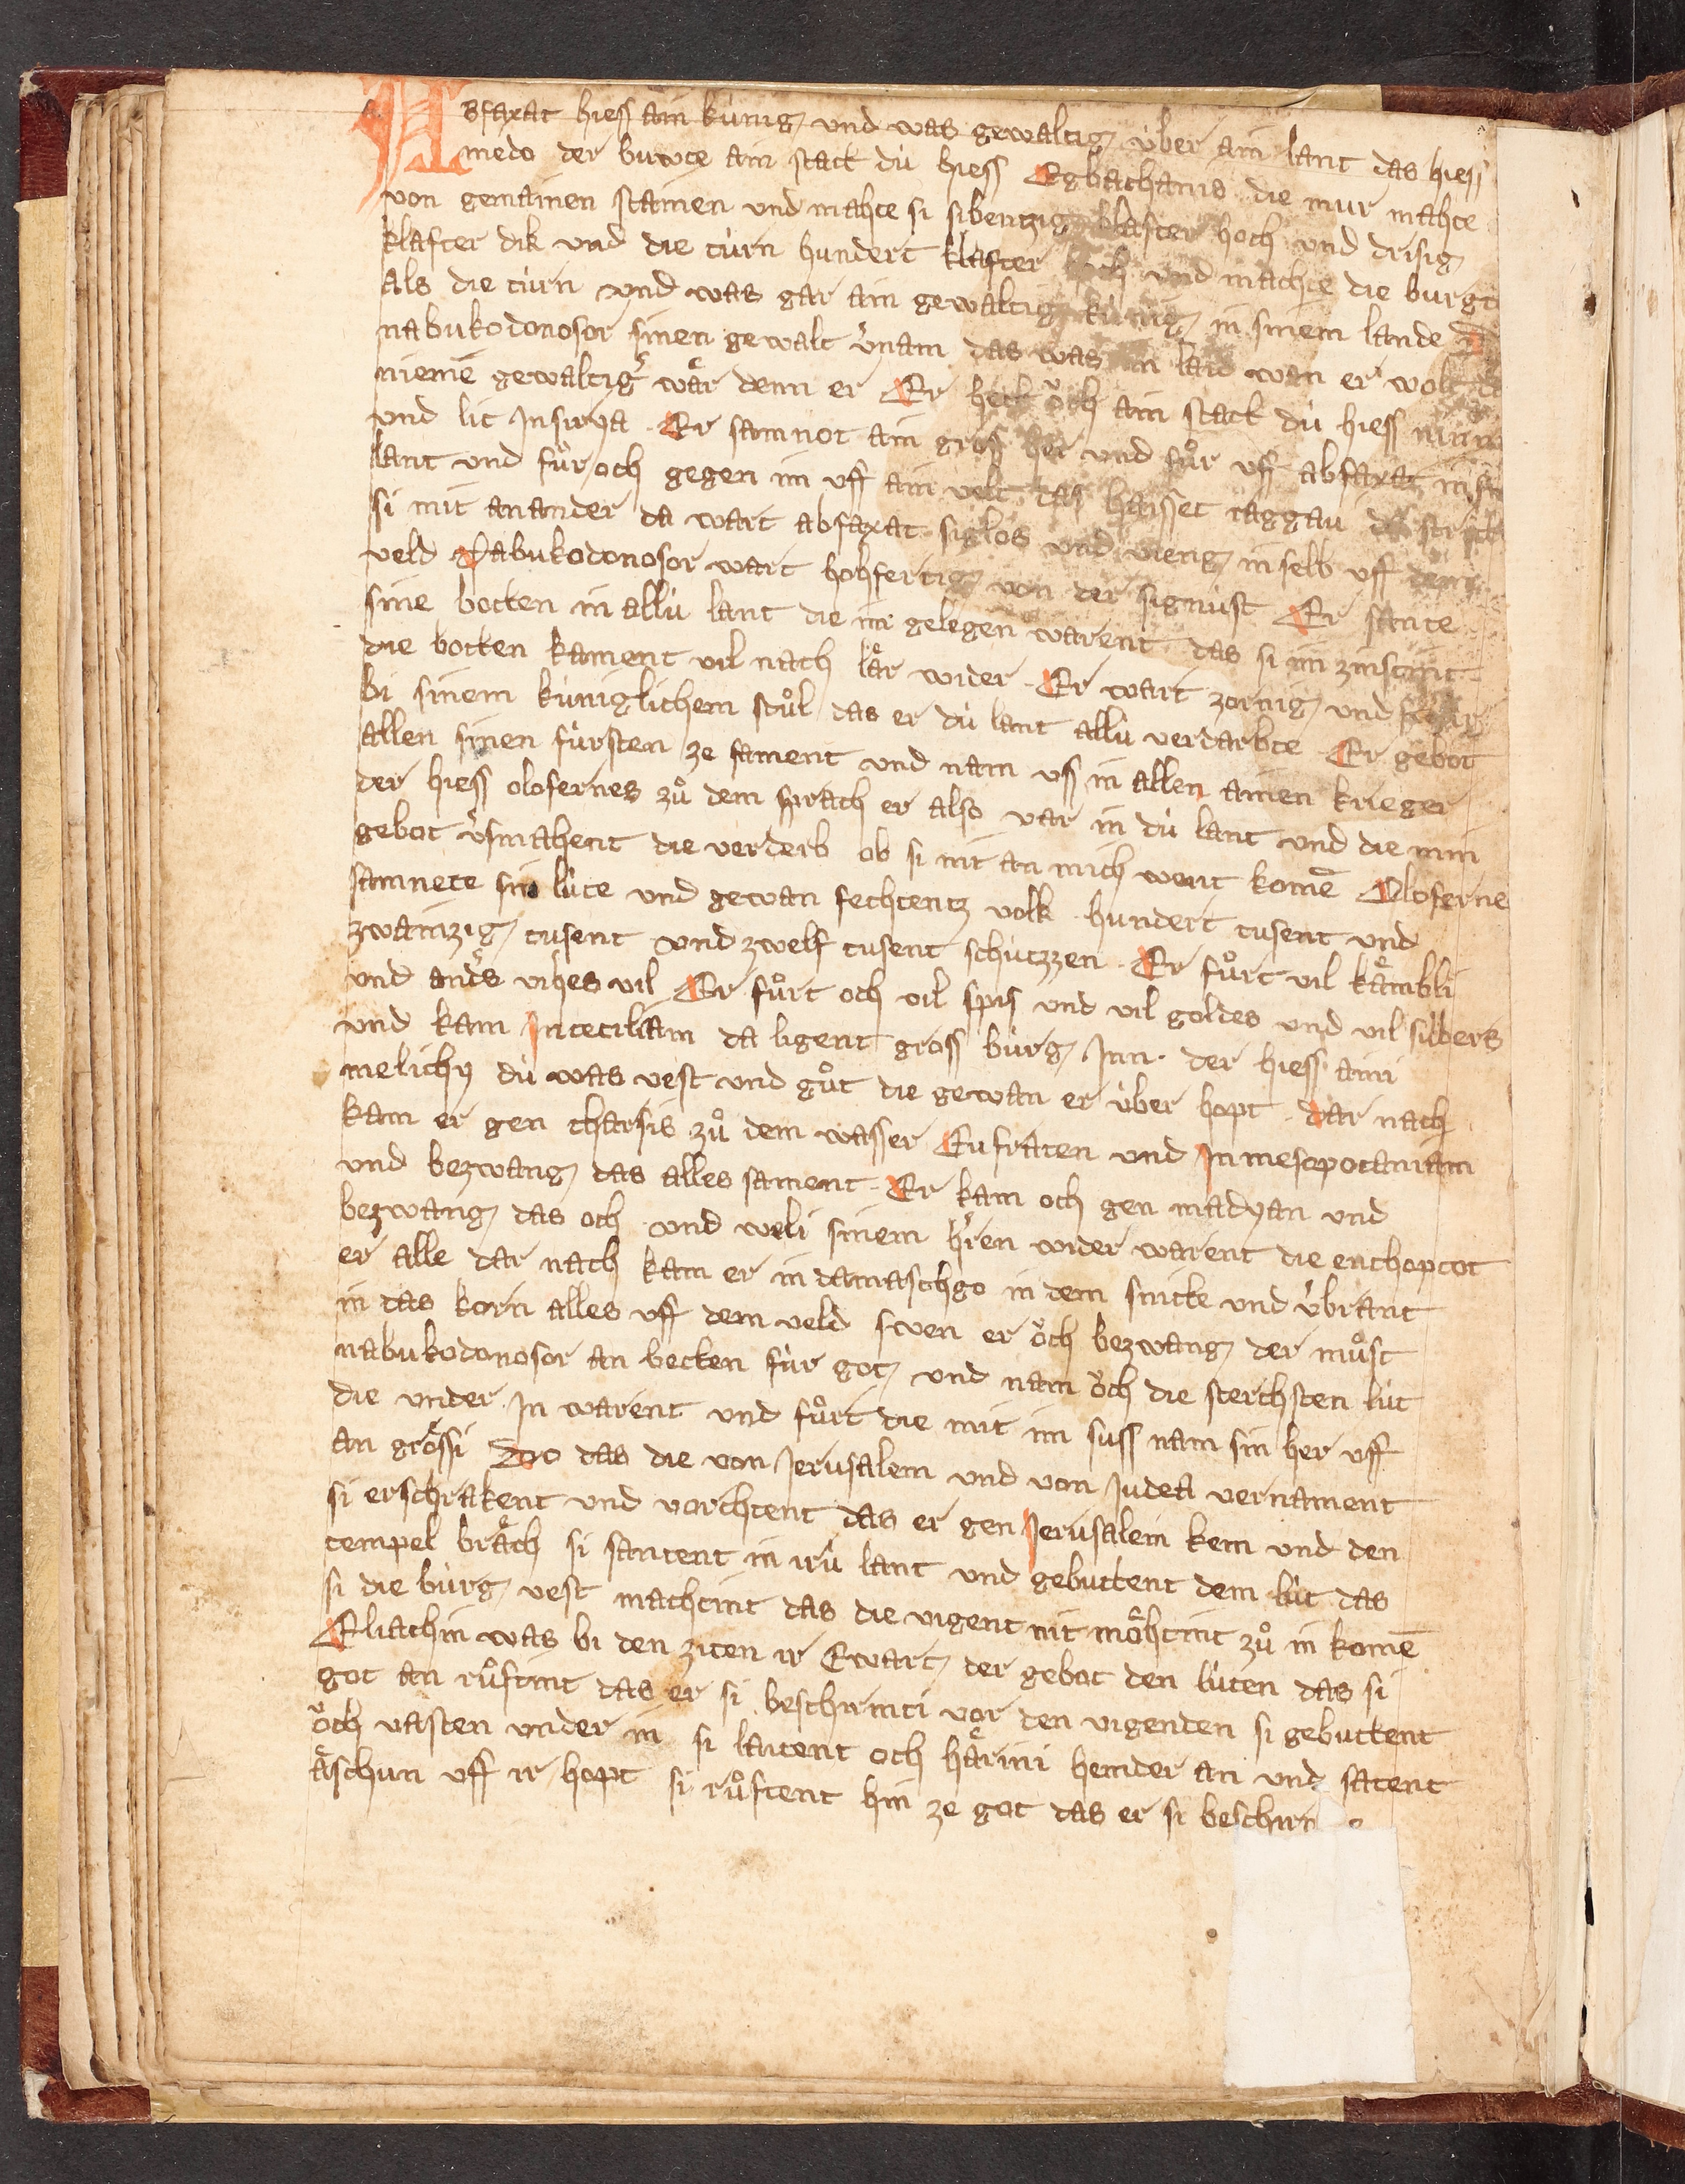 Abfaxat hiess ain kúnig und was gewaltig úber ain lant das hiess
medo der buwte ain statt dú hiess Egbathanis die mur mahte
von gemainen stainen und mahte si sibentzig klafter hoch und drisig
klafter dik und die túrn hundert klafter hoch und machte die burgt
als die túrn und was gar ain gewaltig kúnig in sinem lande
nabukodonosor sinen gewalt v̾nam das was im laid wan er wolt
niemē gewaltig̾ wͣr denn er Er hett ǒch ain statt dú hiess
und lit Insirya Er samnot ain gros her und fůr uff abfaxat in sin
lant und fůr och gegen im uff ain velt das haisset raggau da
si mit ananander da wart abfaxat siglos und vieng in selb uff dem
veld Nabukodonosor wart hohfertig von der signúst Er sante
sine botten in allú lant die im gelegen warent das si im zinstint
die botten kament vil nach lͣr wider Er wart zornig und
bi sinem kúniglichem stůl das er dú lant allú verdarbte Er gebot
allen sinen fúrsten ze sament und nam uss in allen ainen krieger
der hiess olofernes zů dem sprach er also var in dú lant und die min
gebot v̾smahent die verderb ob si nit an mich went komē Oloferne
samnete sin lúte und gewan fechtentz volk hundert tusent und
zwainzig tusent und zwelf tusent schutzzen Er fůrt vil kͣmbli
und and̾s vihes vil Er fůrt och vil spis und vil goldes und vil silbers
und kam Intecilliam da ligent gross búrg Inn der hiess aini
melichy dú was vest und gůt die gewan er úber hopt dar nach
kam er gen tharsis zů dem wasser Eufraten und In mesopotaniam
und bezwang das alles sament Er kam och gen madyan und
bezwang das och und weli sinem h̾ren wider warent die enthoptot
er alle dar nach kam er in damaschgo in dem snitte und v̾brant
in das korn alles uff dem veld swen er ǒch bezwang der můst
nabukodonosor an betten fúr got und nam ǒch die sterchsten lút
die under In warent und fůrt die mit im suss nam sin her uff
an grͦssi Do das die von Jerusalem und von Judea vernament
si erschrakent und vorchtent das er gen Jerusalem kem und den
tempel brͣch si santent in irú lant und gebuttent dem lút das
si die búrg vest machtint das die vigent nit mͦhtint zů in komē
Eliachin was bi den ziten ir Ewart der gebot den lúten das si
got an růftint das er si beschirmti vor den vigenden si gebuttent
ǒch vasten under in si laitent och hͣrini hemder an und satent
ͣschun uff ir hopt si růftent hin ze got das er si